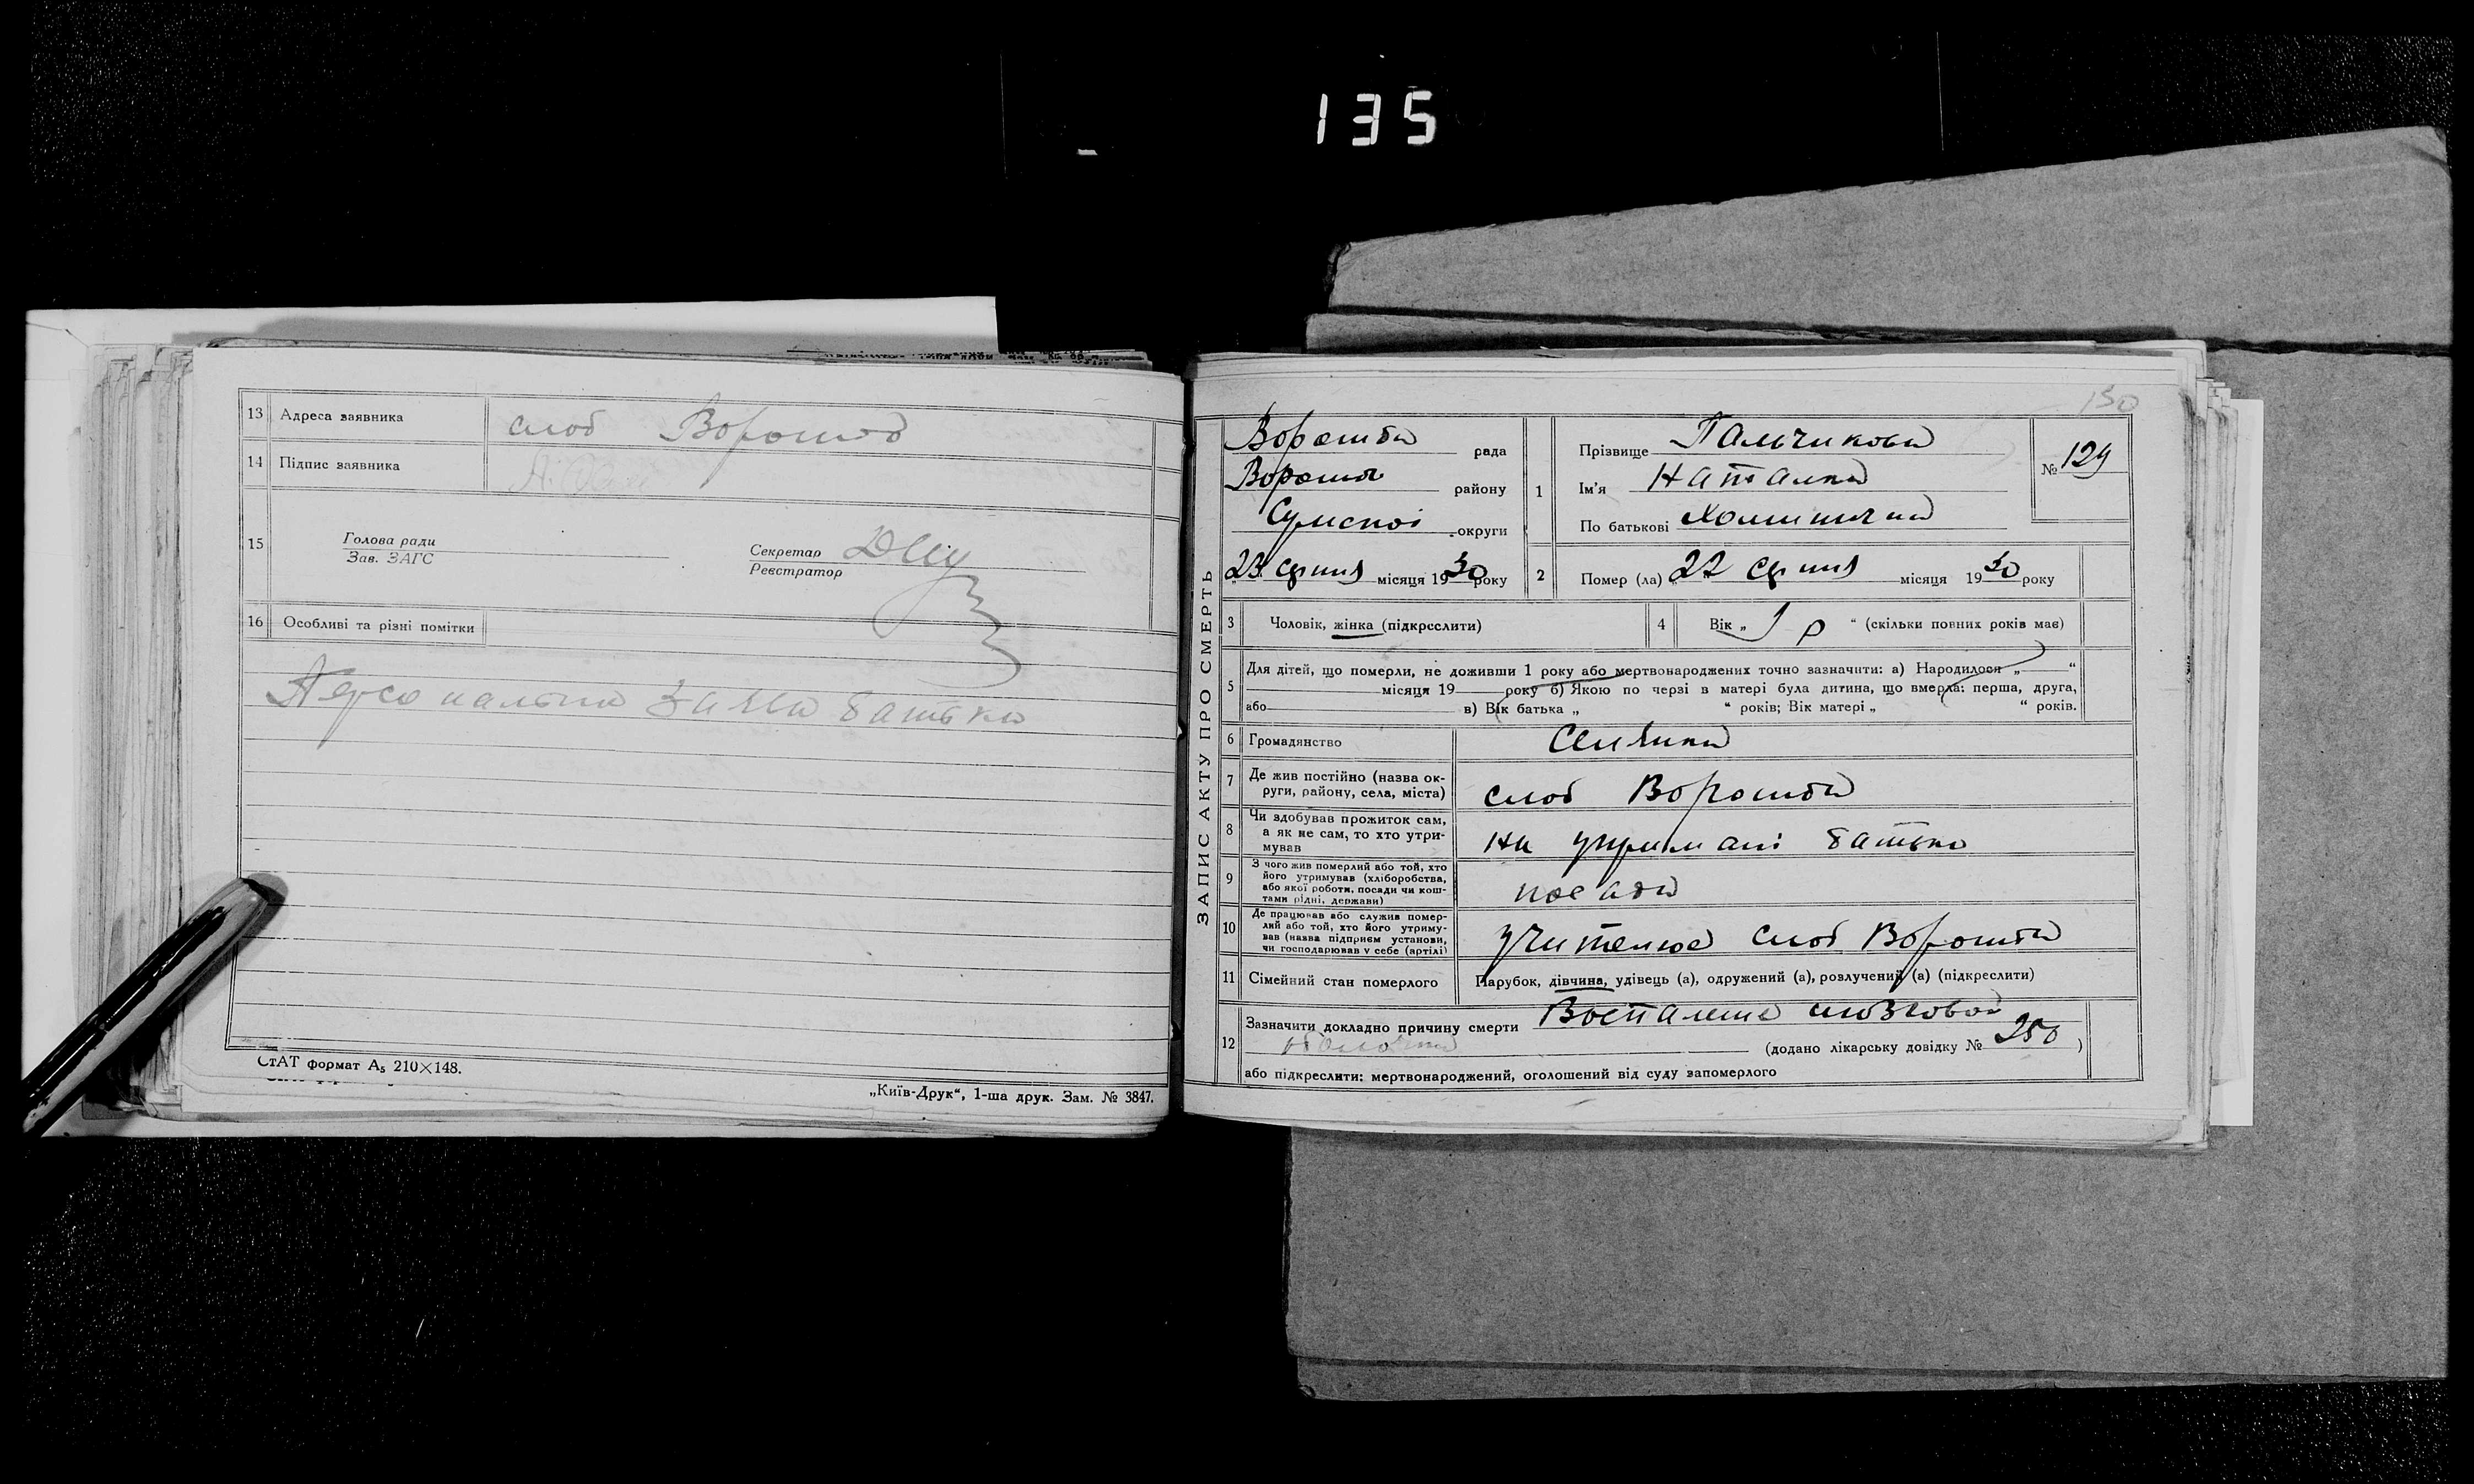 135
13 Адреса заявника слоб Ворожба
14 Підпис заявника
15 Голова ради
Зав. ЗАГС
Секретар
Реєстратор
16 Особливі та різні помітки
Персональна заява батька
СтАТ формат А₅ 210×148.
„Київ-Друк“, 1-ша друк. Зам. № 3847.
150
ЗАПИС АКТУ ПРО СМЕРТЬ
Ворожба рада
район
Сумської округи
23 серпня місяця 1930 року
1 Прізвище Пальчикова
Ім'я Наталка
По батькові
№ 129
2 Помер (ла) 22 серпня місяця 1930 року
3 Чоловік, жінка (підкреслити)
4 Вік „ 1 р “ (скільки повних років має)
5 Для дітей, що померли, не доживши 1 року або мертвонароджених точно зазначити: а) Народилося „ “
місяця 19 року б) Якою по черзі в матері була дитина, що вмерла: перша, друга,
або в) Вік батька „ “ років; Вік матері „ “ років.
6 Громадянство
7 Де жив постійно (назва ок-
руги, району, села, міста) слоб Ворожба
8 Чи здобував прожиток сам,
а як не сам, то хто утри-
мував на утримані батька
9 З чого жив померлий або той, хто
його утримував (хліборобства,
або якої роботи, посади чи кош-
тами рідні, держави) посада
10 Де працював або служив помер-
лий або той, хто його утриму-
вав (назва підприєм установи,
чи господарював у себе (артілі) учителює слоб Ворожба
11 Сімейний стан померлого Парубок, дівчина, удівець (а), одружений (а), розлучений (а) (підкреслити)
12 Зазначити докладно причину смерти Воспаление мозговой
оболочки (додано лікарську довідку № 250 )
або підкреслити: мертвонароджений, оголошений від суду запомерлого